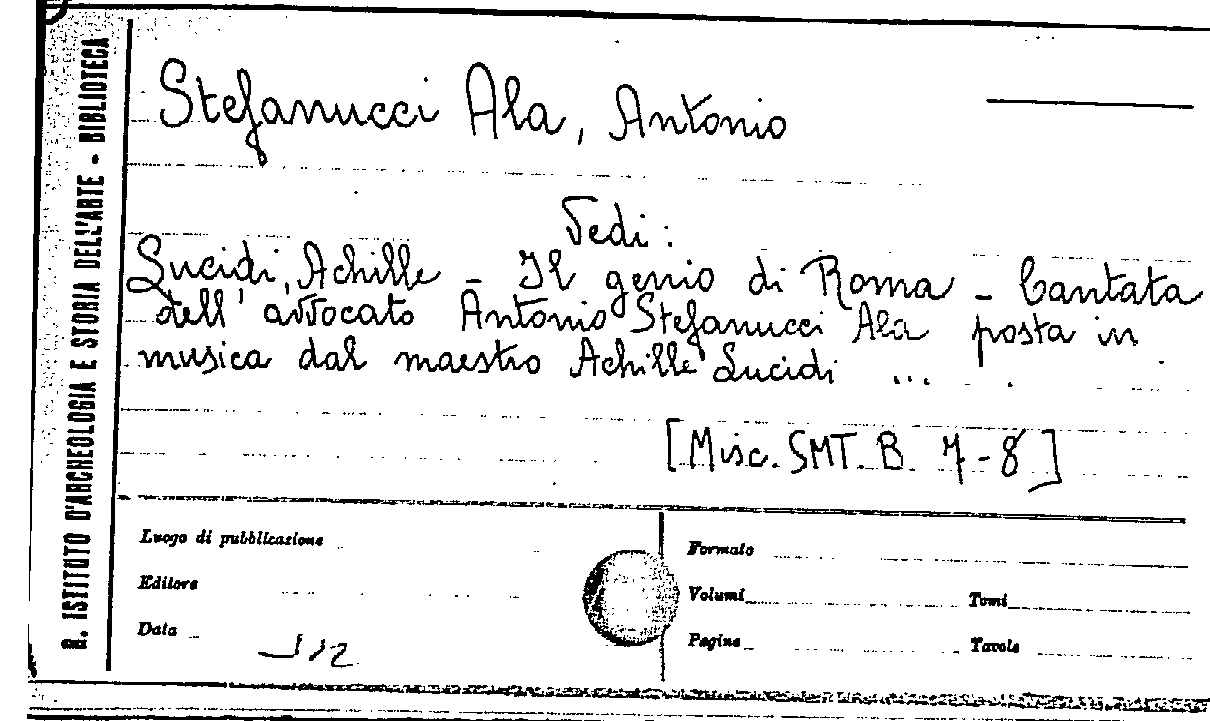 R. ISTITUTO D'ARCHEOLOGIA E STORIA DELL'ARTE - BIBLIOTECA
Stefanucci Ala, Antonio
Vedi:
Lucidi, Achille - Il genio di Roma - Cantata
dell'avvocato Antonio Stefanucci Ala posta in
musica dal maestro Achille Lucidi ...
[Misc. SMT. B. 7-8]
Luogo di pubblicazione
Editore
Data
Formato
Volumi Tomi
Pagine Tavole